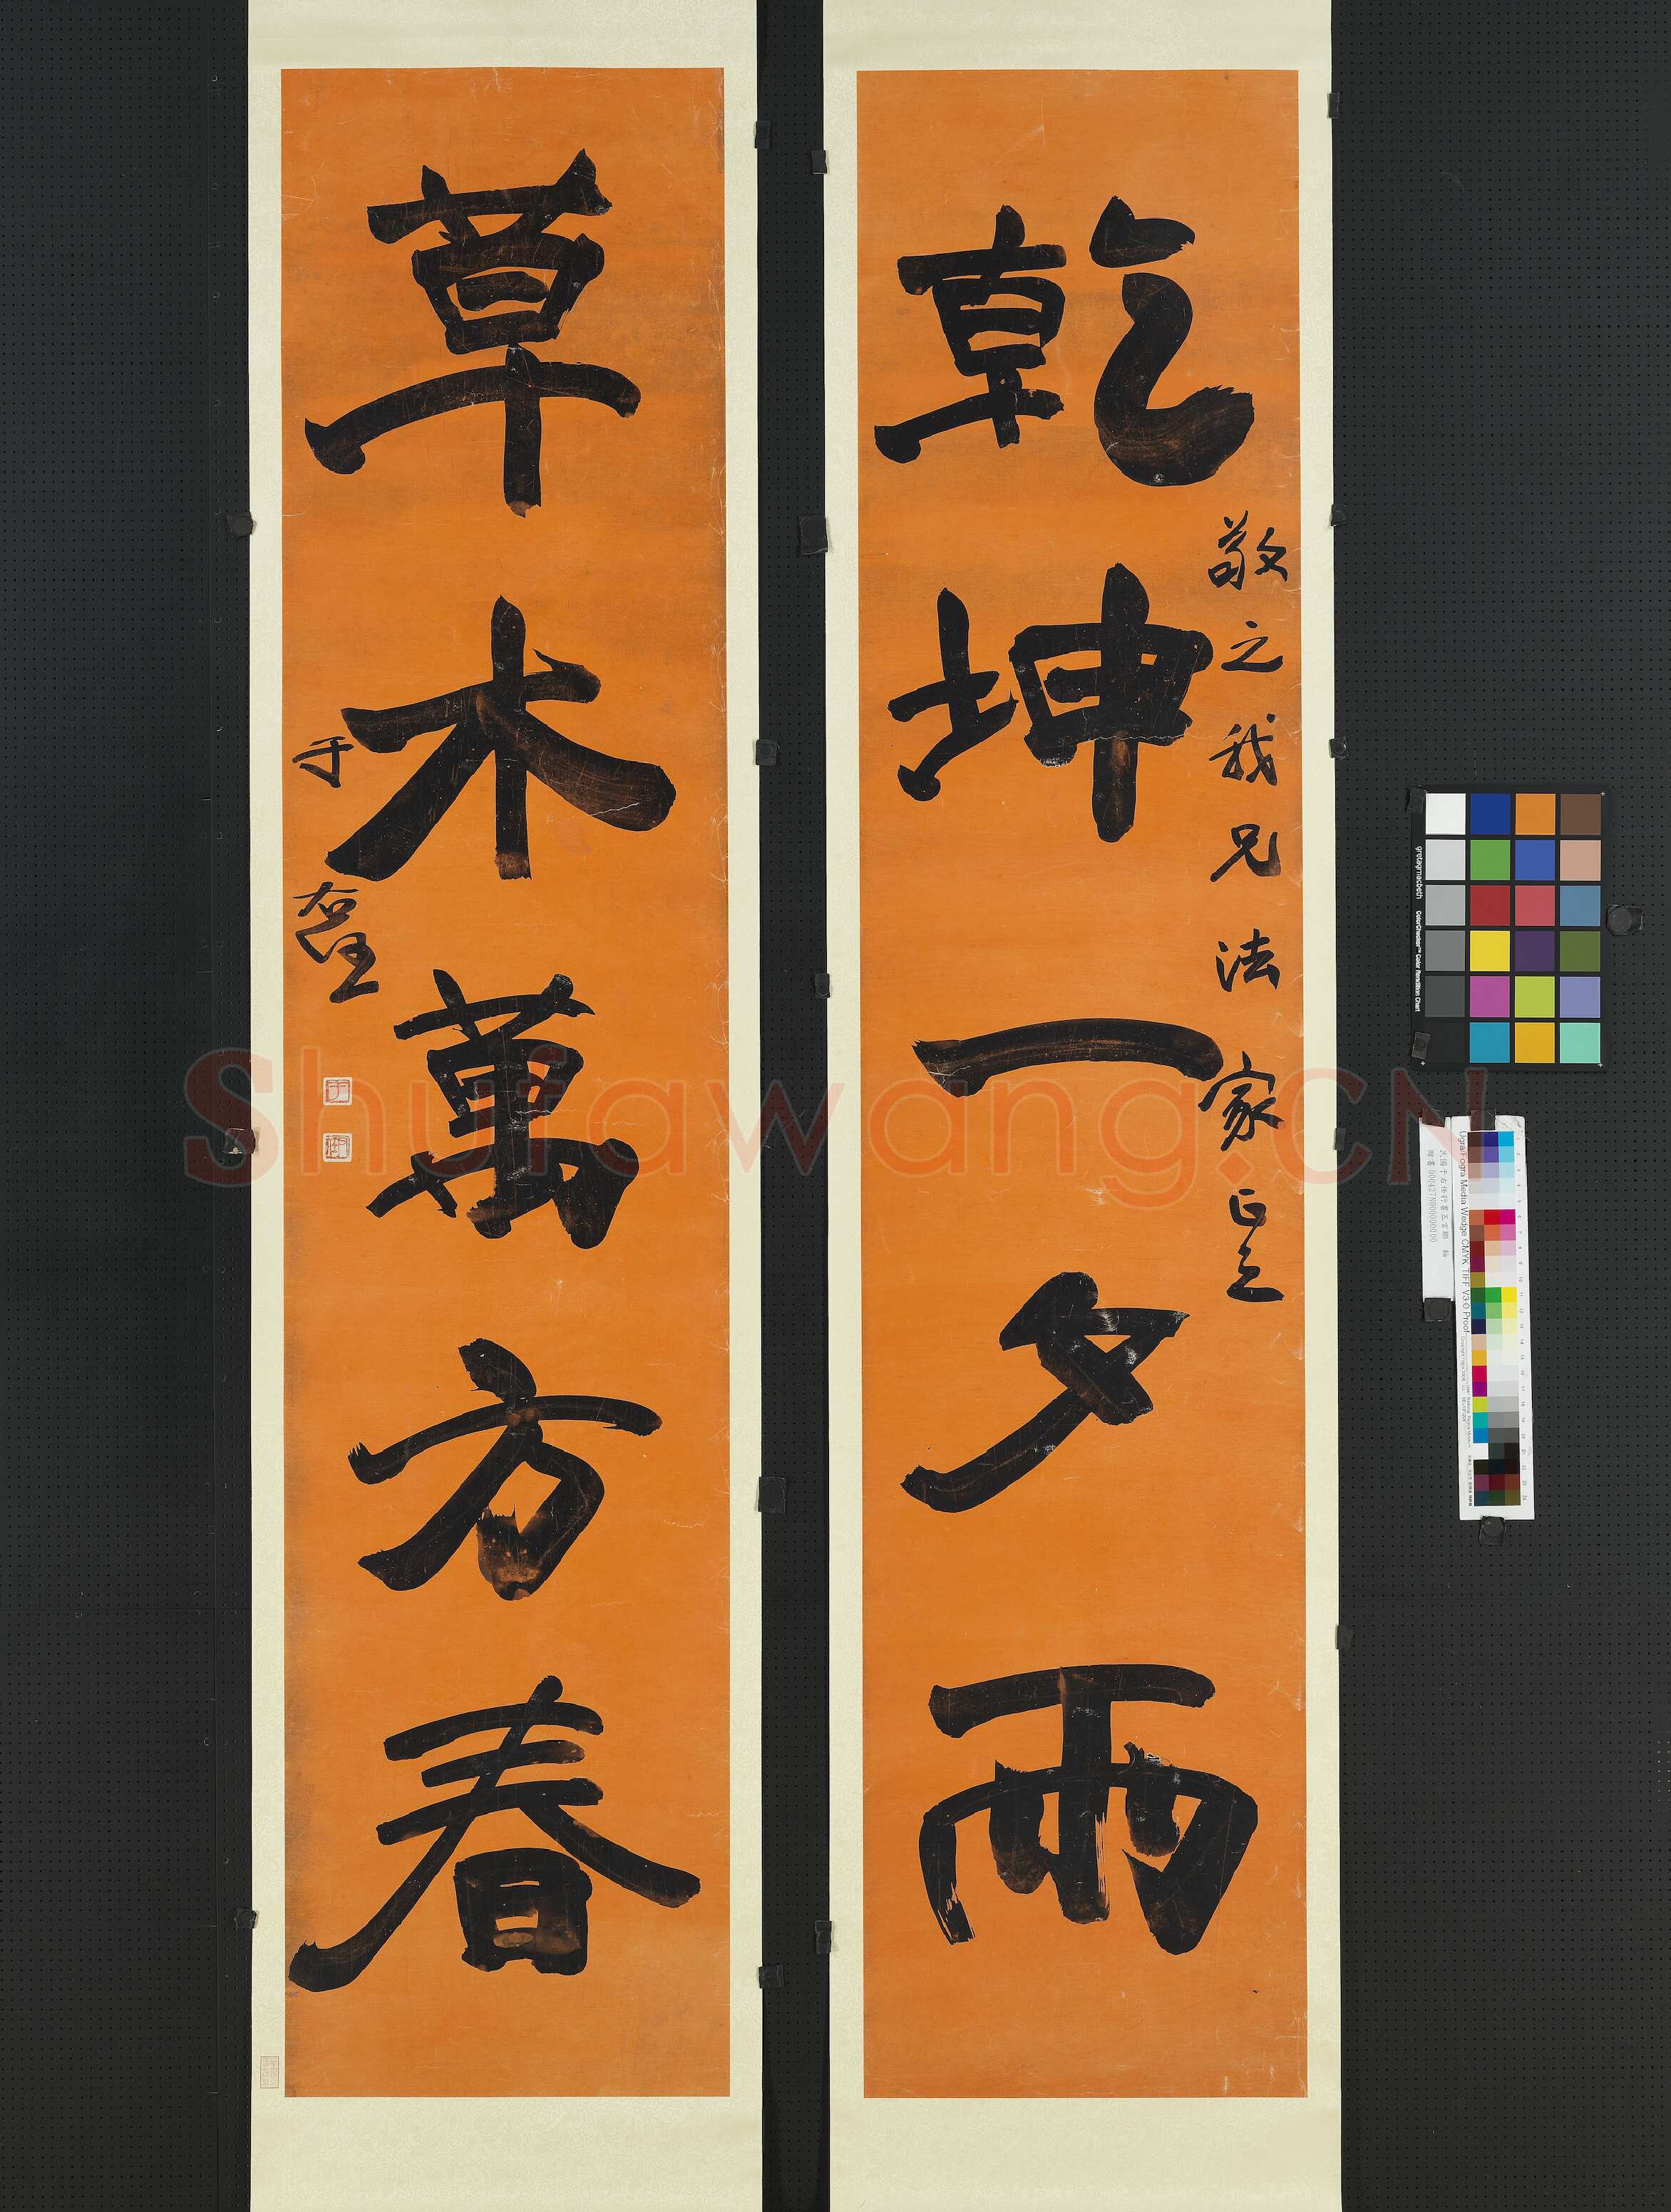 乾坤一夕雨
敬之我兄法家正之
草木萬方春
于右任
Shufawang.CN
gretagmacbeth
ColorChecker™ Color Rendition Chart
Ugra/Fogra Media Wedge CMYK TIFF V3.0 Proof